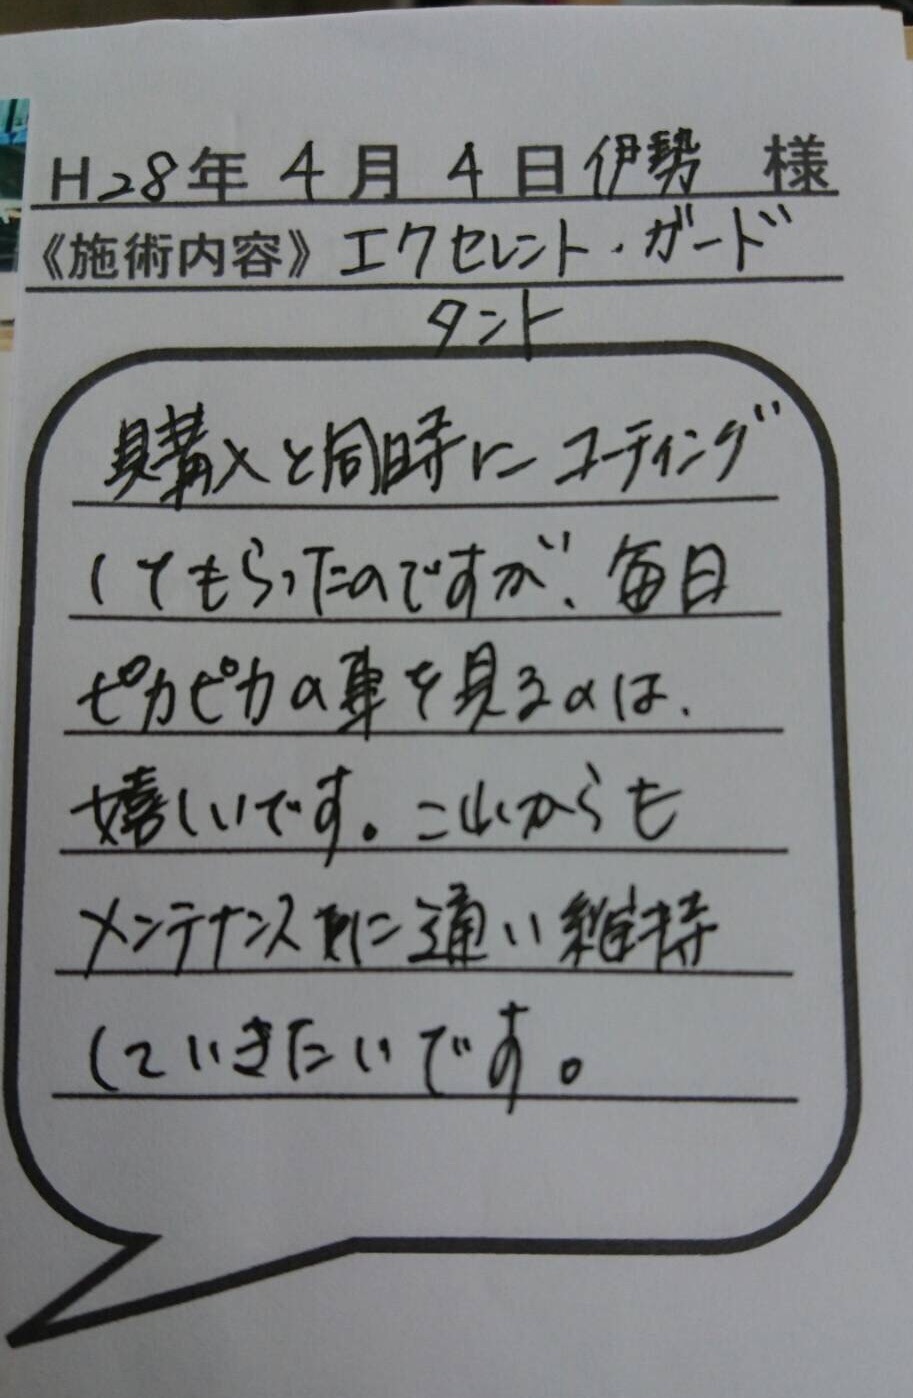 H28年 4月 4日 伊勢 様
《施術内容》エクセレント・ガード
タント
購入と同時にコーティング
してもらったのですが、毎日
ピカピカの車を見るのは、
嬉しいです。これからも
メンテナンスに通い維持
していきたいです。